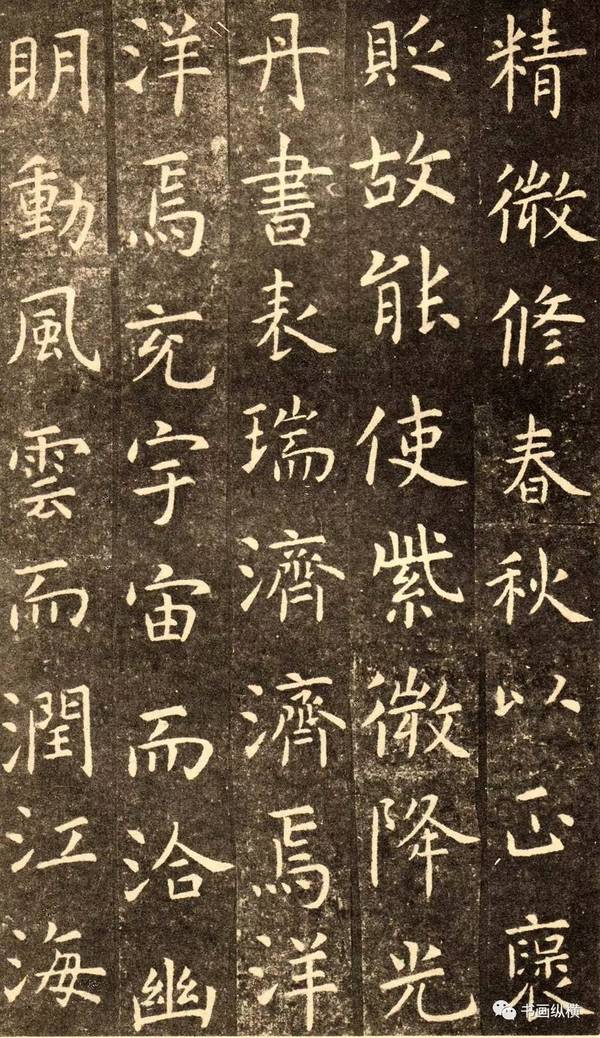 精微修春秋以正襃
貶故能使紫微降光
丹書表瑞濟濟焉洋
洋焉充宇宙而洽幽
明動風雲而潤江海
书画纵横